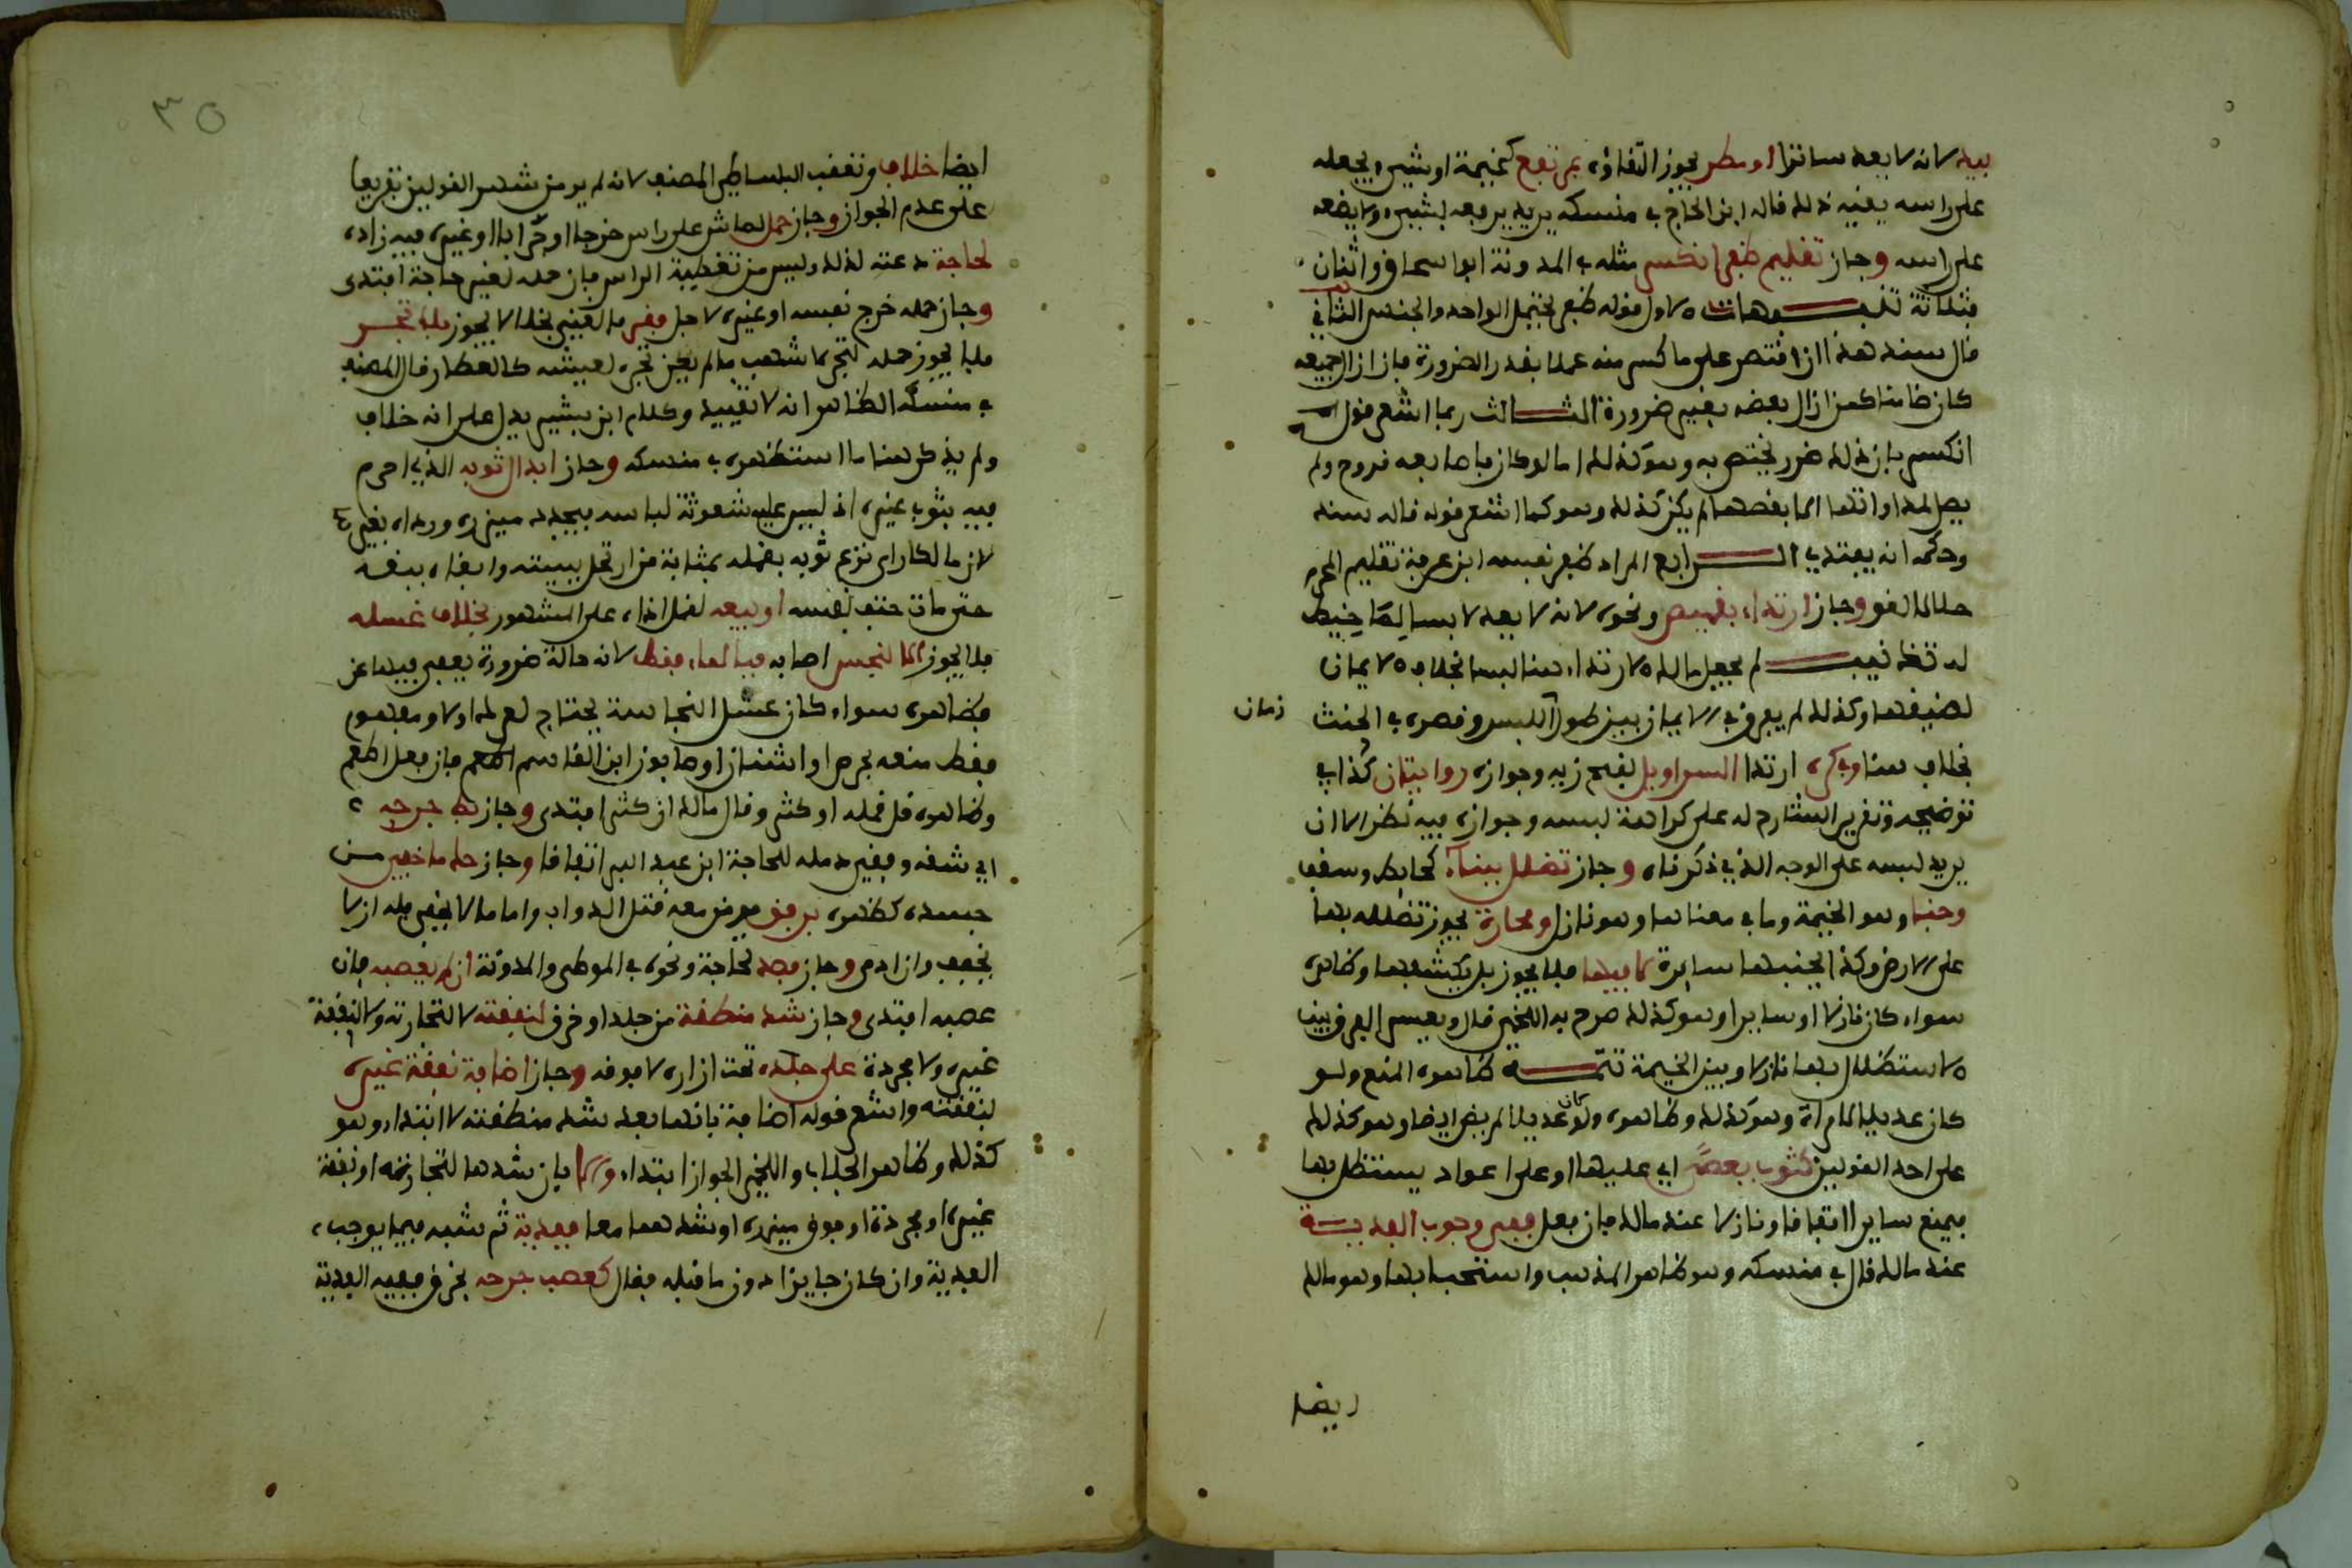 بيد لانه لا يعد ساترا او مطر يجوز اتقاؤه بمرتفع كخيمة او شيء يجعله
على راسه يقيه ذلك قاله ابن الحاج في منسكه يريد يرفعه بشيء ولا يضعه
على راسه وجاز تقليم ظفر انكسر مثله في المدونة ابو اسحاق واثنان
وثلاثة تنبيهات الاول قوله ظفر يحتمل الواحد والجنس الثاني
قال سند هذا ان اقتصر على ما كسر منه عملا بقدر الضرورة فان ازال جميعه
كان ضامنا كمن ازال بعضه بغير ضرورة الثالث ربما اشعر قوله
انكسر بان ذلك ضرر يختص به وهو كذلك اما لو كان باصابعه قروح ولم
يصل لمداواتها الا بقصها لم يكن كذلك وهو كما اشعر قوله قاله سند
وحكمه انه يفتدي الرابع المراد ظفر نفسه ابن عرفة تقليم المحرم
حلالا لغو وجاز ارتداء بقميص ونحوه لانه لا يعد لابسا لما خيط
له تنبيه لم يجعل مالك الارتداء هنا لبسا بخلاف الايمان
لضيقها وكذلك لم يفرق في الايمان بين طول اللبس وقصره في الحنث
زمان
بخلاف هنا وفي كره ارتدا السراويل لقبح زيه وجوازه روايتان كذا في
توضيحه وتقرير الشارح له على كراهة لبسه وجوازه فيه نظر الا ان
يريد لبسه على الوجه الذي ذكرناه وجاز تظلل ببناء كحائط وسقف
وخباء وهو الخيمة وما في معناها وهو نازل ومحارة يجوز تظلله بها
على الارض وكذا بجنبها سايرة لا فيها فلا يجوز بل يكشفها وظاهره
سواء كان نازلا او سايرا وهو كذلك صرح به اللخمي قال ويعسر الفرق بين
الاستظلال بها نازلا وبين الخيمة تتمة ظاهره المنع ولو
كان عديلا لامراة وهو كذلك وظاهره ولو كان عديلا لمريض ايضا وهو كذلك
على احد القولين كثوب بعصا اي عليها او على اعواد يستظل بها
فيمنع سايرا اتفاقا ونازلا عند مالك فان فعل ففي وجوب الفدية
عند مالك قال في منسكه وهو ظاهر المذهب واستحبابها وهو مالك
ايضا
٣٥
ايضا خلاف وتعقب البساطي المصنف لانه لم ير من شهر القولين تفريعا
على عدم الجواز وجاز حمل لماش على راس خرجا او جرابا او غيره فيه زاده
لحاجة دعته لذلك وليس من تغطية الراس فان حمله لغير حاجة افتدى
وجاز حمله خرج نفسه او غيره لاجل فقر لا لغني بخلا لا يجوز بلا تجر
فلا يجوز حمله لتجر لاشهب ما لم يكن تجره لعيشه كالعطار قال المصنف
في منسكه الظاهر انه لا تقييد وكلام ابن بشير يدل على انه خلاف
ولم يذكر هنا ما استظهره في منسكه وجاز ابدال ثوبه الذي احرم
فيه بثوب غيره اذ ليس عليه شعوثة لباسه فيجدد ميزره ورداه بغيره
لان مالكا راى نزع ثوبه بقمله بمثابة من ارتحل ببيته وابقاه ببقه
حتى مات حتف انفسه او بيعه لقمل اذاه على المشهور بخلاف غسله
فلا يجوز الا لنجس اصابه فبالماء فقط لانه حالة ضرورة يعفى فيها عن
وظاهره سواء كان غسل النجاسة يحتاج لعرك او لا ومفهوم
فقط منعه بحرص او اشنان او صابون ابن القاسم اطعم فان فعل اطعم
وظاهره قل قمله او كثر وقال مالك ان كثر افتدى وجاز بط جرحه
اي شقه وفقر دمله للحاجة ابن عبد البر اتفاقا وجاز حك ما خفي من
جسده كظهره برفق خوف معه قتل الدواب واما ما لا يخفى فله ان لا
يخفف وان ادمى وجاز فصد لحاجة ونحوه في الموطى والمدونة ان لم يعصبه فان
عصبه افتدى وجاز شد منطقة من جلد او خرق لنفقته لا لتجارته ولا لنفقة
غيره ولا مجردة على جلده تحت ازاره لا فوقه وجاز اضافة نفقة غيره
لنفقته واشعر قوله اضافة بانها بعد شد منطقته لا ابتداء وهو
كذلك وظاهر الجلاب واللخمي الجواز ابتداء والا بان شدها لتجارته او نفقة
غيره او مجردة او فوق ميزره او شدهما معا ففدية ثم شبه فيما يوجب
الفدية وان كان جايزا دون ما قبله فقال كعصب جرحه بخرق ففيه الفدية